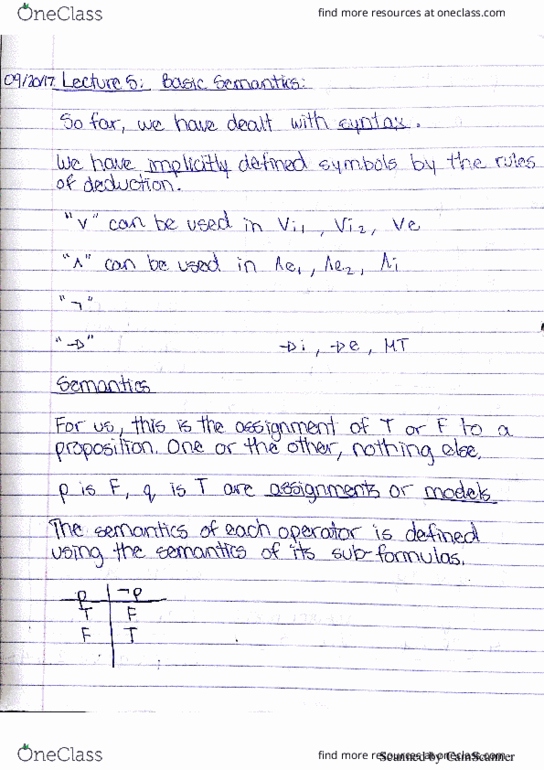 OneClass find more resources at oneclass.com
09/20/17. Lecture 5: Basic Semantics:
So far, we have dealt with syntax.
We have implicitly defined symbols by the rules
of deduction.
"∨" can be used in ∨i₁, ∨i₂, ∨e
"∧" can be used in ∧e₁, ∧e₂, ∧i
"¬"
"→" →i, →e, MT
Semantics
For us, this is the assignment of T or F to a
proposition. One or the other, nothing else.
p is F, q is T are assignments or models
The semantics of each operator is defined
using the semantics of its sub-formulas.
p ¬p
T F
F T
OneClass find more resources at oneclass.com
Scanned by CamScanner